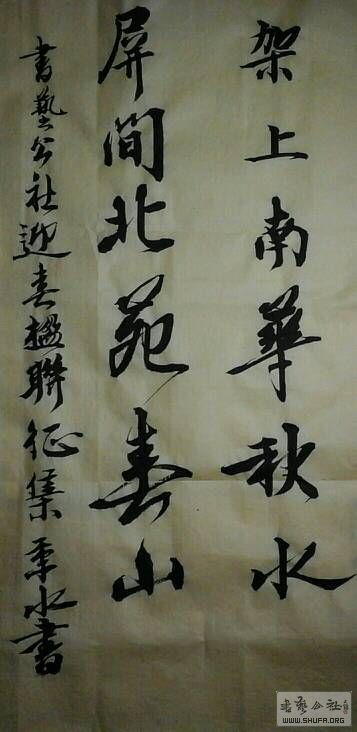 架上南華秋水
屏間北苑春山
書藝公社迎春楹聯征集 秉水書
書藝公社
WWW.SHUFA.ORG